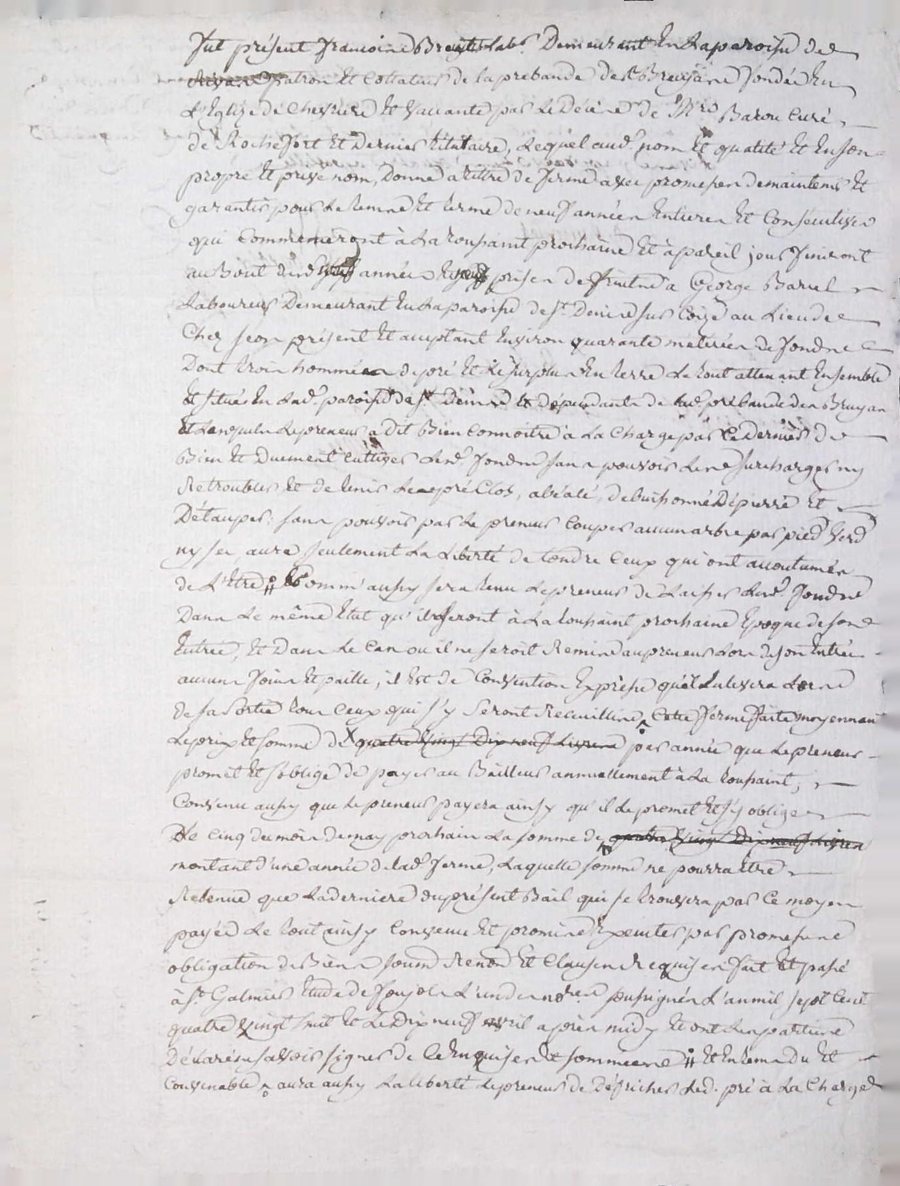 fut présent francoise Bruyas labr Demeurant En la paroisse de
patron Et Collateur de la prebande des Bruyas fondée En
L'Eglise de Chevriere Et Vacante par Le Décéds de Mre Barou Curé
de Rochefort Et Dernier titulaire, Lequel aud. nom Et qualité Et En son
propre Et privé nom, Donne a titre de ferme avec promesse de maintenir Et
garantir pour Le temps Et terme de neuf années Entieres Et Consecutives
qui Commenceront à La toussaint prochaine Et à pareil jour finiront
au Bout années prises de fruits à George Barcel
Laboureur Demeurant En La paroisse de St Denis sur Coize au Lieu de
Chez Jean présent Et acceptant Environ quarante meterées de fonds
Dont trois hommées de pré Et Le Surplus En terre Le tout attenant Ensemble
Et situés En Lad. paroisse de St Denis Et dependants de lad. prébande des Bruyas
Et Lesquels Le preneur a dit Bien Connoitre à La Charge par Ce dernier de
Bien Et Duement Cultiver Lesd. fonds sans pouvoir Les surcharger ny
Retroubler Et de tenir Les prés Clos, de buissonné Dépierré Et
Détaupés: sans pouvoir par Le preneur Couper aucun arbre par pied Verd
ny sec aura seulement La Liberté de tondre Ceux qui ont accoutumés
de L'Etre Comm' aussy sera tenu Le preneur de Laisser Lesd. fonds
Dans Le même Etat qu'ils seront à La toussaint prochaine Epoque de son
Entrée, Et Dans Le Cas ou il ne seroit Remis au preneur Lors de son Entrée
aucuns foins Et paille, il Est de Convention Expresse qu'il Enlevera Lors
de sa Sortie tous Ceux qui s'y Seront Recueillis, Cette ferme faite moyennant
Le prix Et somme de quatre Vingt Dix neuf Livres par année que Le preneur
promet Et s'oblige de payer au Bailleur annuellement à La toussaint,
Convenu aussy que Le preneur payera ainsy qu'il Le promet Et s'y oblige
Le Cinq du mois de may prochain La somme de quatre Vingt Dix neuf Livres
montant d'une année de lad. ferme, Laquelle somme ne pourra Etre
Retenue que La derniere du présent Bail qui se trouvera par Ce moyen
payée Le tout ainsy Convenu Et promis Executer par promesses
obligation de Biens soumis Renon Et Clauses Requises fait Et passé
à St Galmier Etude de L'un des nores soussignés L'an mil sept Cent
quatre Vingt huit Et Le Dix neuf avril après midy Et ont Les parties
Déclaré ne savoir signer de Ce Enquises Et sommées Et En tems du Et
Convenable, aura aussy La liberté Le preneur de Défricher Led. pré à La Charge